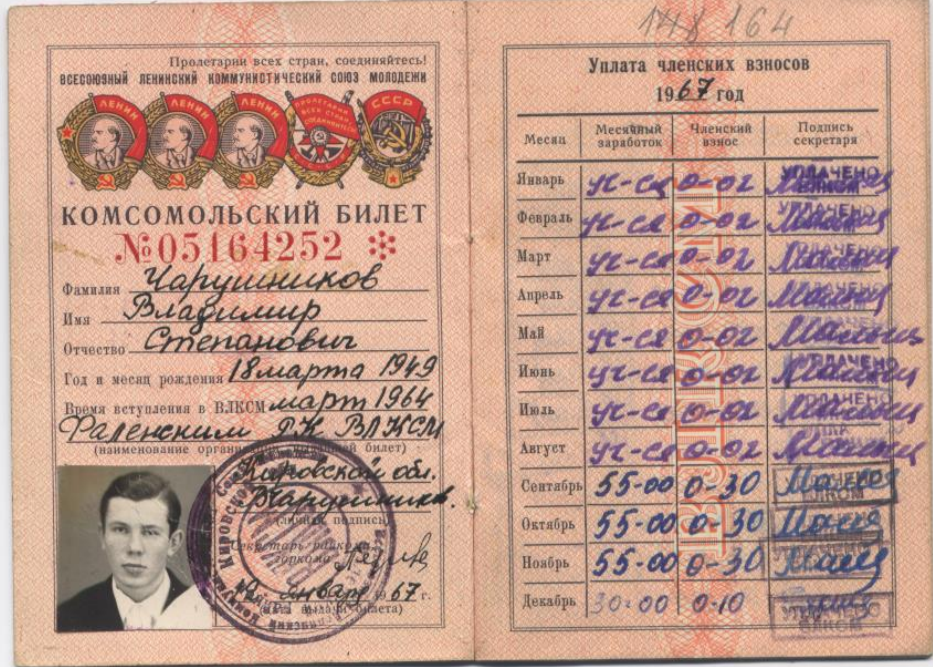 Пролетарии всех стран, соединяйтесь!
ВСЕСОЮЗНЫЙ ЛЕНИНСКИЙ КОММУНИСТИЧЕСКИЙ СОЮЗ МОЛОДЕЖИ
ЛЕНИН ЛЕНИН ЛЕНИН ПРОЛЕТАРИИ ВСЕХ СТРАН СОЕДИНЯЙТЕСЬ СССР
КОМСОМОЛЬСКИЙ БИЛЕТ
№05164252
Фамилия Чарушников
Имя Владимир
Отчество Степанович
Год и месяц рождения 18 марта 1949
Время вступления в ВЛКСМ март 1964
Фаленским РК ВЛКСМ
(наименование организации, билет)
Кировской обл.
(личная подпись)
Секретарь райкома
горкома
январь 1967 г.
(дата выдачи билета)
148 164
Уплата членских взносов
1967 год
Месяц Месячный заработок Членский взнос Подпись секретаря
Январь уч-ся 0-02 УПЛАЧЕНО ВЛКСМ
Февраль уч-ся 0-02 УПЛАЧЕНО
Март уч-ся 0-02 УПЛАЧЕНО
Апрель уч-ся 0-02
Май уч-ся 0-02
Июнь уч-ся 0-02 УПЛАЧЕНО
Июль уч-ся 0-02 УПЛАЧЕНО
Август уч-ся 0-02
Сентябрь 55-00 0-30 УПЛАЧЕНО ВЛКСМ
Октябрь 55-00 0-30
Ноябрь 55-00 0-30
Декабрь 30-00 0-10 УПЛАЧЕНО ВЛКСМ